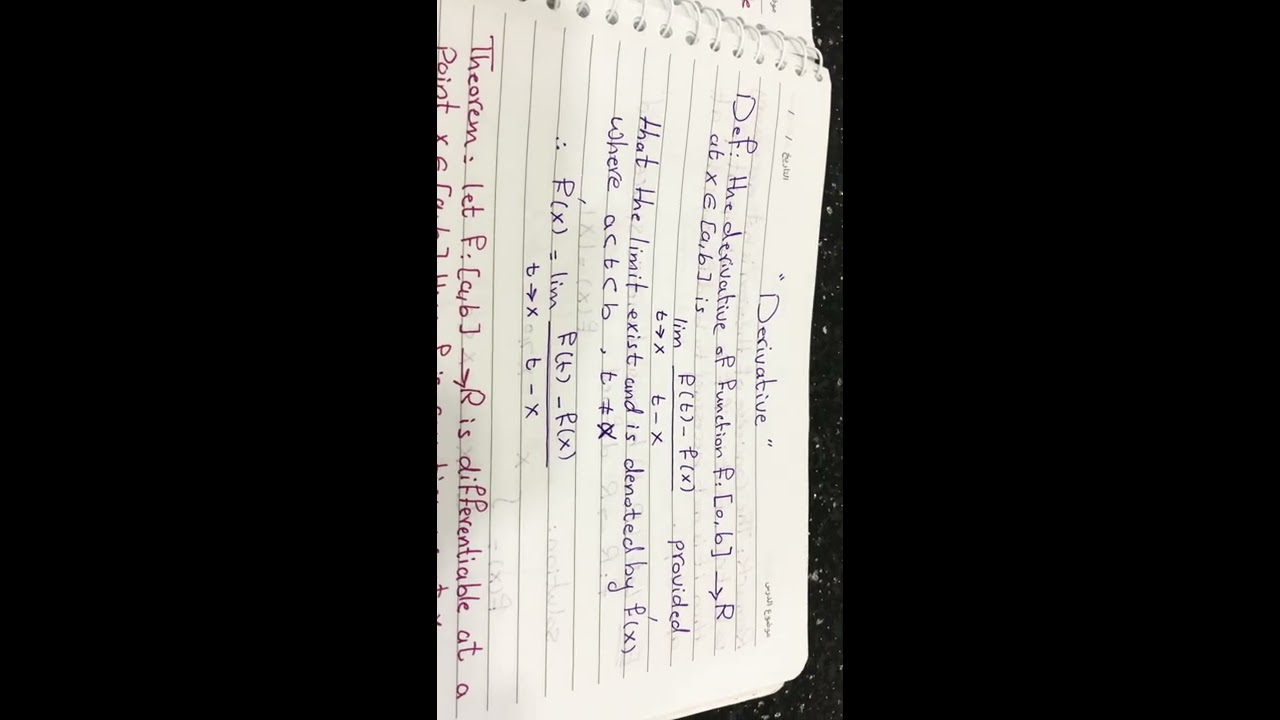 التاريخ / /
موضوع الدرس
" Derivative "
Def: the derivative of function f: [a,b] → R
at x ∈ [a,b] is
lim f(t) - f(x) provided
t→x t - x
that the limit exist and is denoted by f'(x)
where a < t < b , t ≠ x
∴ f'(x) = lim f(t) - f(x)
t→x t - x
Theorem: let f: [a,b] → R is differentiable at a
point x ∈ [a,b] then f is